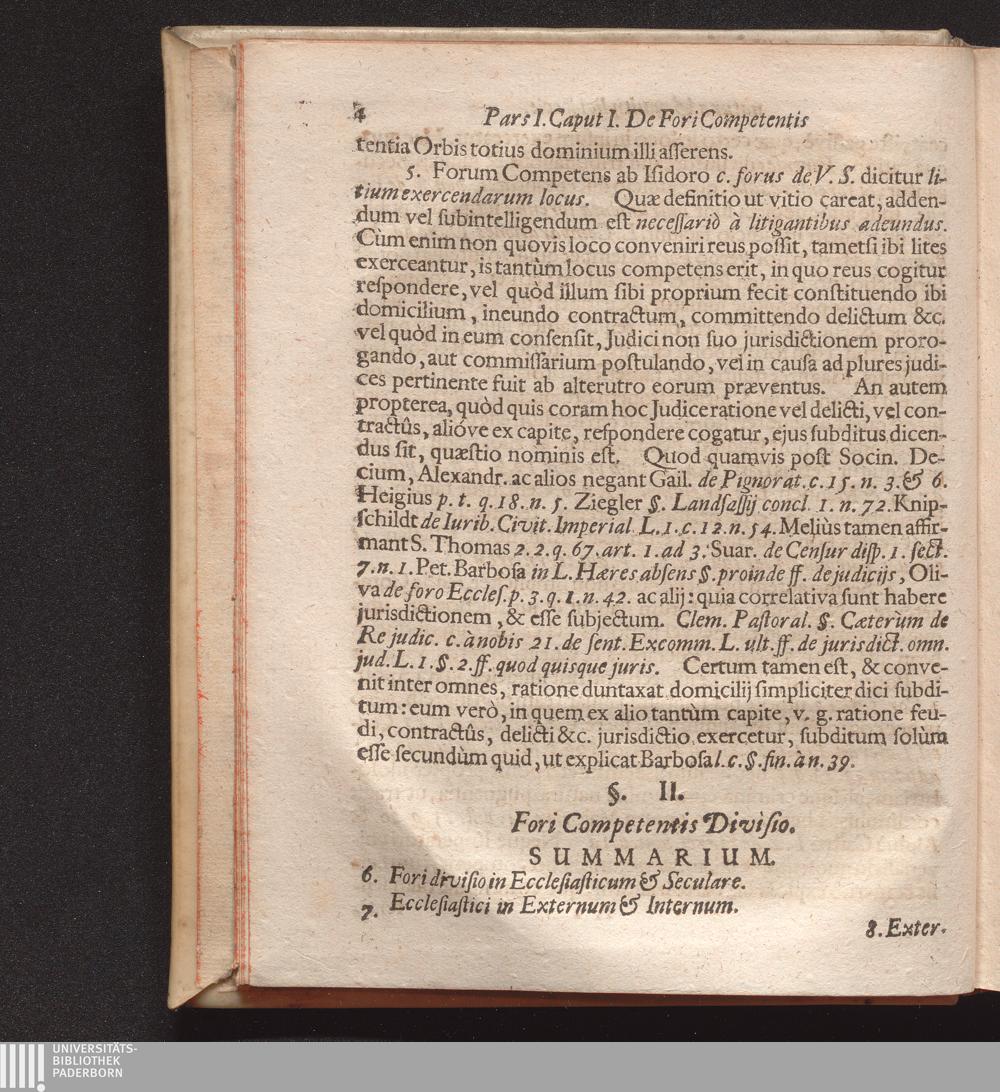 4 Pars I. Caput I. De Fori Competentis
tentia Orbis totius dominium illi aſſerens.
5. Forum Competens ab Iſidoro c. forus de V. S. dicitur li-
tium exercendarum locus. Quæ definitio ut vitio careat, adden-
dum vel ſubintelligendum eſt neceſſariò à litigantibus adeundus.
Cùm enim non quovis loco conveniri reus poſſit, tametſi ibi lites
exerceantur, is tantùm locus competens erit, in quo reus cogitur
reſpondere, vel quòd illum ſibi proprium fecit conſtituendo ibi
domicilium, ineundo contractum, committendo delictum &c.
vel quòd in eum conſenſit, Judici non ſuo jurisdictionem proro-
gando, aut commiſſarium poſtulando, vel in cauſa ad plures judi-
ces pertinente fuit ab alterutro eorum præventus. An autem
propterea, quòd quis coram hoc Judice ratione vel delicti, vel con-
tractûs, alióve ex capite, reſpondere cogatur, ejus ſubditus dicen-
dus ſit, quæſtio nominis eſt. Quod quamvis poſt Socin. De-
cium, Alexandr. ac alios negant Gail. de Pignorat. c. 15. n. 3. & 6.
Heigius p. t. q. 18. n. 5. Ziegler §. Landſaſſij concl. 1. n. 72. Knip-
ſchildt de Iurib. Civit. Imperial L. 1. c. 12. n. 54. Meliùs tamen affir-
mant S. Thomas 2. 2. q. 67. art. 1. ad 3. Suar. de Cenſur diſp. 1. ſect.
7. n. 1. Pet. Barboſa in L. Hæres abſens §. proinde ff. de judicijs, Oli-
va de foro Eccleſ. p. 3. q. 1. n. 42. ac alij: quia correlativa ſunt habere
jurisdictionem, & eſſe ſubjectum. Clem. Paſtoral. §. Cæterùm de
Re judic. c. à nobis 21. de ſent. Excomm. L. ult. ff. de jurisdict. omn.
jud. L. 1. §. 2. ff. quod quisque juris. Certum tamen eſt, & conve-
nit inter omnes, ratione duntaxat domicilij ſimpliciter dici ſubdi-
tum: eum verò, in quem ex alio tantùm capite, v. g. ratione feu-
di, contractûs, delicti &c. jurisdictio exercetur, ſubditum ſolùm
eſſe ſecundùm quid, ut explicat Barboſa l. c. §. fin. à n. 39.
§. II.
Fori Competentis Diviſio.
SUMMARIUM.
6. Fori diviſio in Eccleſiaſticum & Seculare.
7. Eccleſiaſtici in Externum & Internum.
8. Exter-
UNIVERSITÄTS-
BIBLIOTHEK
PADERBORN